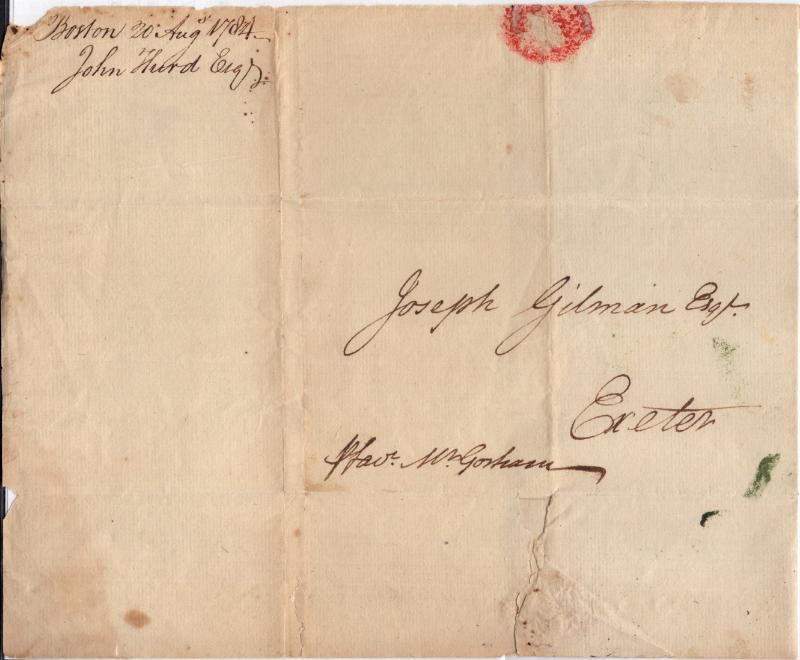 Boston 20 Augst 1784
John Hurd Esqr
Joseph Gilman Esqr.
Exeter
Favr. Mr Gorham